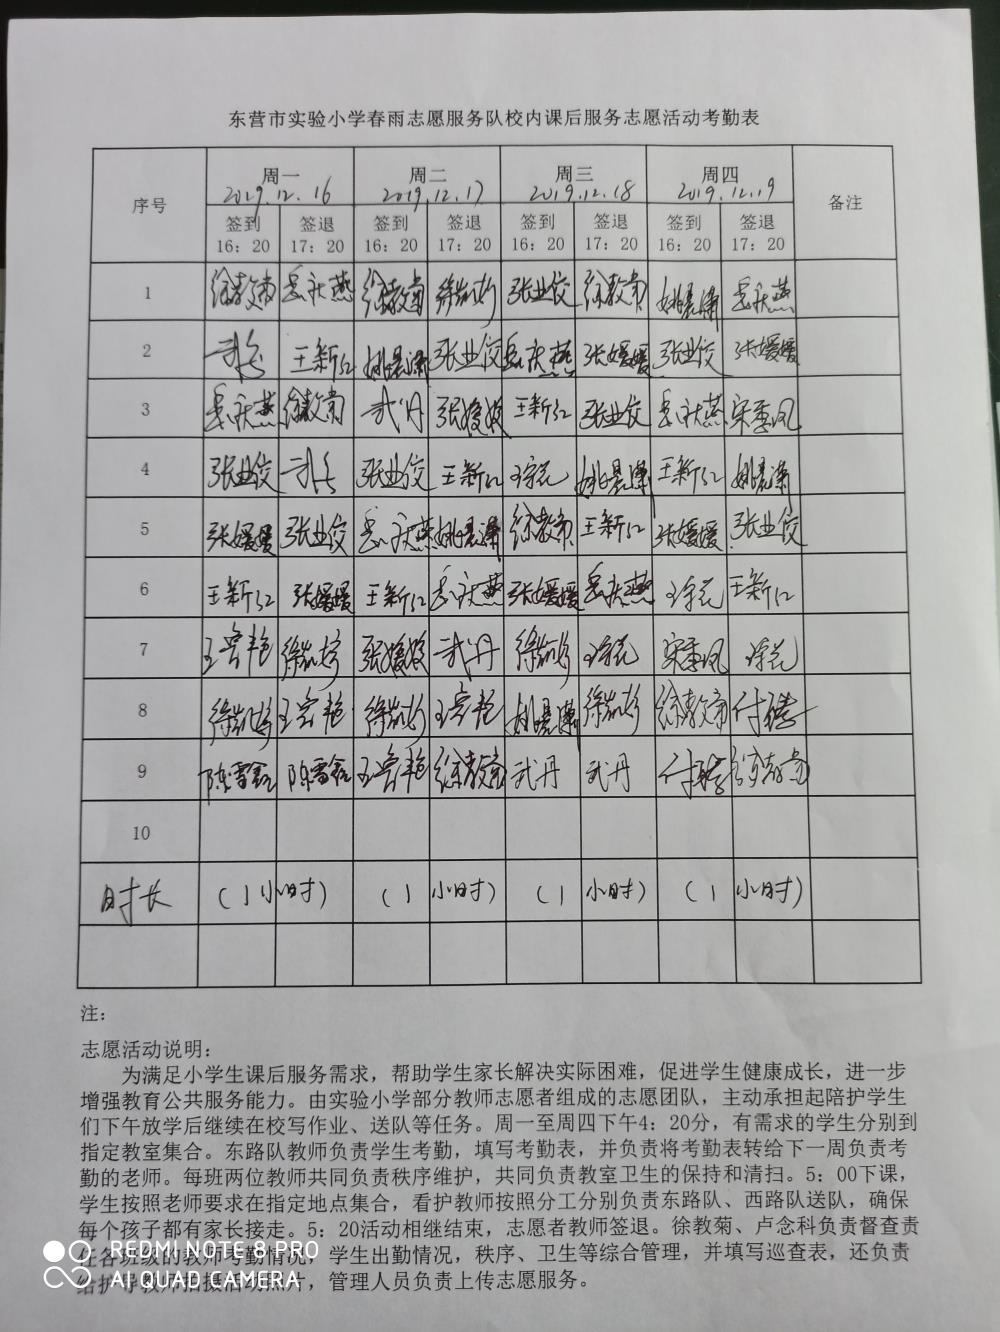 东营市实验小学春雨志愿服务队校内课后服务志愿活动考勤表
序号 周一 周二 周三 周四 备注
2019.12.16 2019.12.17 2019.12.18 2019.12.19
签到 签退 签到 签退 签到 签退 签到 签退
16：20 17：20 16：20 17：20 16：20 17：20 16：20 17：20
1 徐教南 岳庆燕 徐教南 徐凯彬 张业佼 徐教南 姚晨潇 岳庆燕
2 王新红 姚晨潇 张业佼 岳庆燕 张媛媛 张业佼 张媛媛
3 岳庆燕 徐教南 武丹 张媛媛 王新红 张业佼 岳庆燕 宋季凤
4 张业佼 张业佼 王新红 姚晨潇 王新红 姚晨潇
5 张媛媛 张业佼 岳庆燕 姚晨潇 徐教南 王新红 张媛媛 张业佼
6 王新红 张媛媛 王新红 岳庆燕 张媛媛 岳庆燕 王新红
7 徐凯彬 张媛媛 武丹 徐凯彬 宋季凤
8 徐凯彬 徐凯彬 姚晨潇 徐凯彬 徐教南
9 陈雪鑫 陈雪鑫 徐教南 武丹 武丹
10
时长 （1小时） （1 小时） （1 小时） （1 小时）
注：
志愿活动说明：
为满足小学生课后服务需求，帮助学生家长解决实际困难，促进学生健康成长，进一步
增强教育公共服务能力。由实验小学部分教师志愿者组成的志愿团队，主动承担起陪护学生
们下午放学后继续在校写作业、送队等任务。周一至周四下午4：20分，有需求的学生分别到
指定教室集合。东路队教师负责学生考勤，填写考勤表，并负责将考勤表转给下一周负责考
勤的老师。每班两位教师共同负责秩序维护，共同负责教室卫生的保持和清扫。5：00下课，
学生按照老师要求在指定地点集合，看护教师按照分工分别负责东路队、西路队送队，确保
每个孩子都有家长接走。5：20活动相继结束，志愿者教师签退。徐教菊、卢念科负责督查责
任各班级的教师考勤情况，学生出勤情况，秩序、卫生等综合管理，并填写巡查表，还负责
给护导教师拍摄活动照片，管理人员负责上传志愿服务。
REDMI NOTE 8 PRO
AI QUAD CAMERA